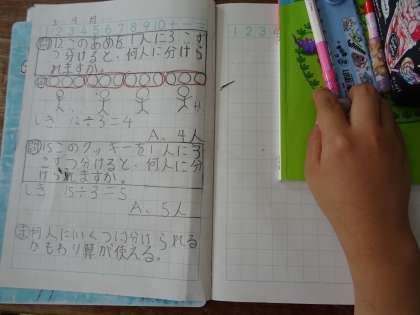 1 2 3 4 5 6 7 8 9 10 十 一 二
問 12このあめを1人に3こず
つ分けると、何人に分けら
れますか。
4人
しき 12÷3=4
A、4人
問 15このクッキーを1人に3
こずつ分けると、何人に分
けられますか。
しき 15÷3=5
A、5人
ま 何人にいくつ分けられる
かもわり算が使える。
1 2 3 4